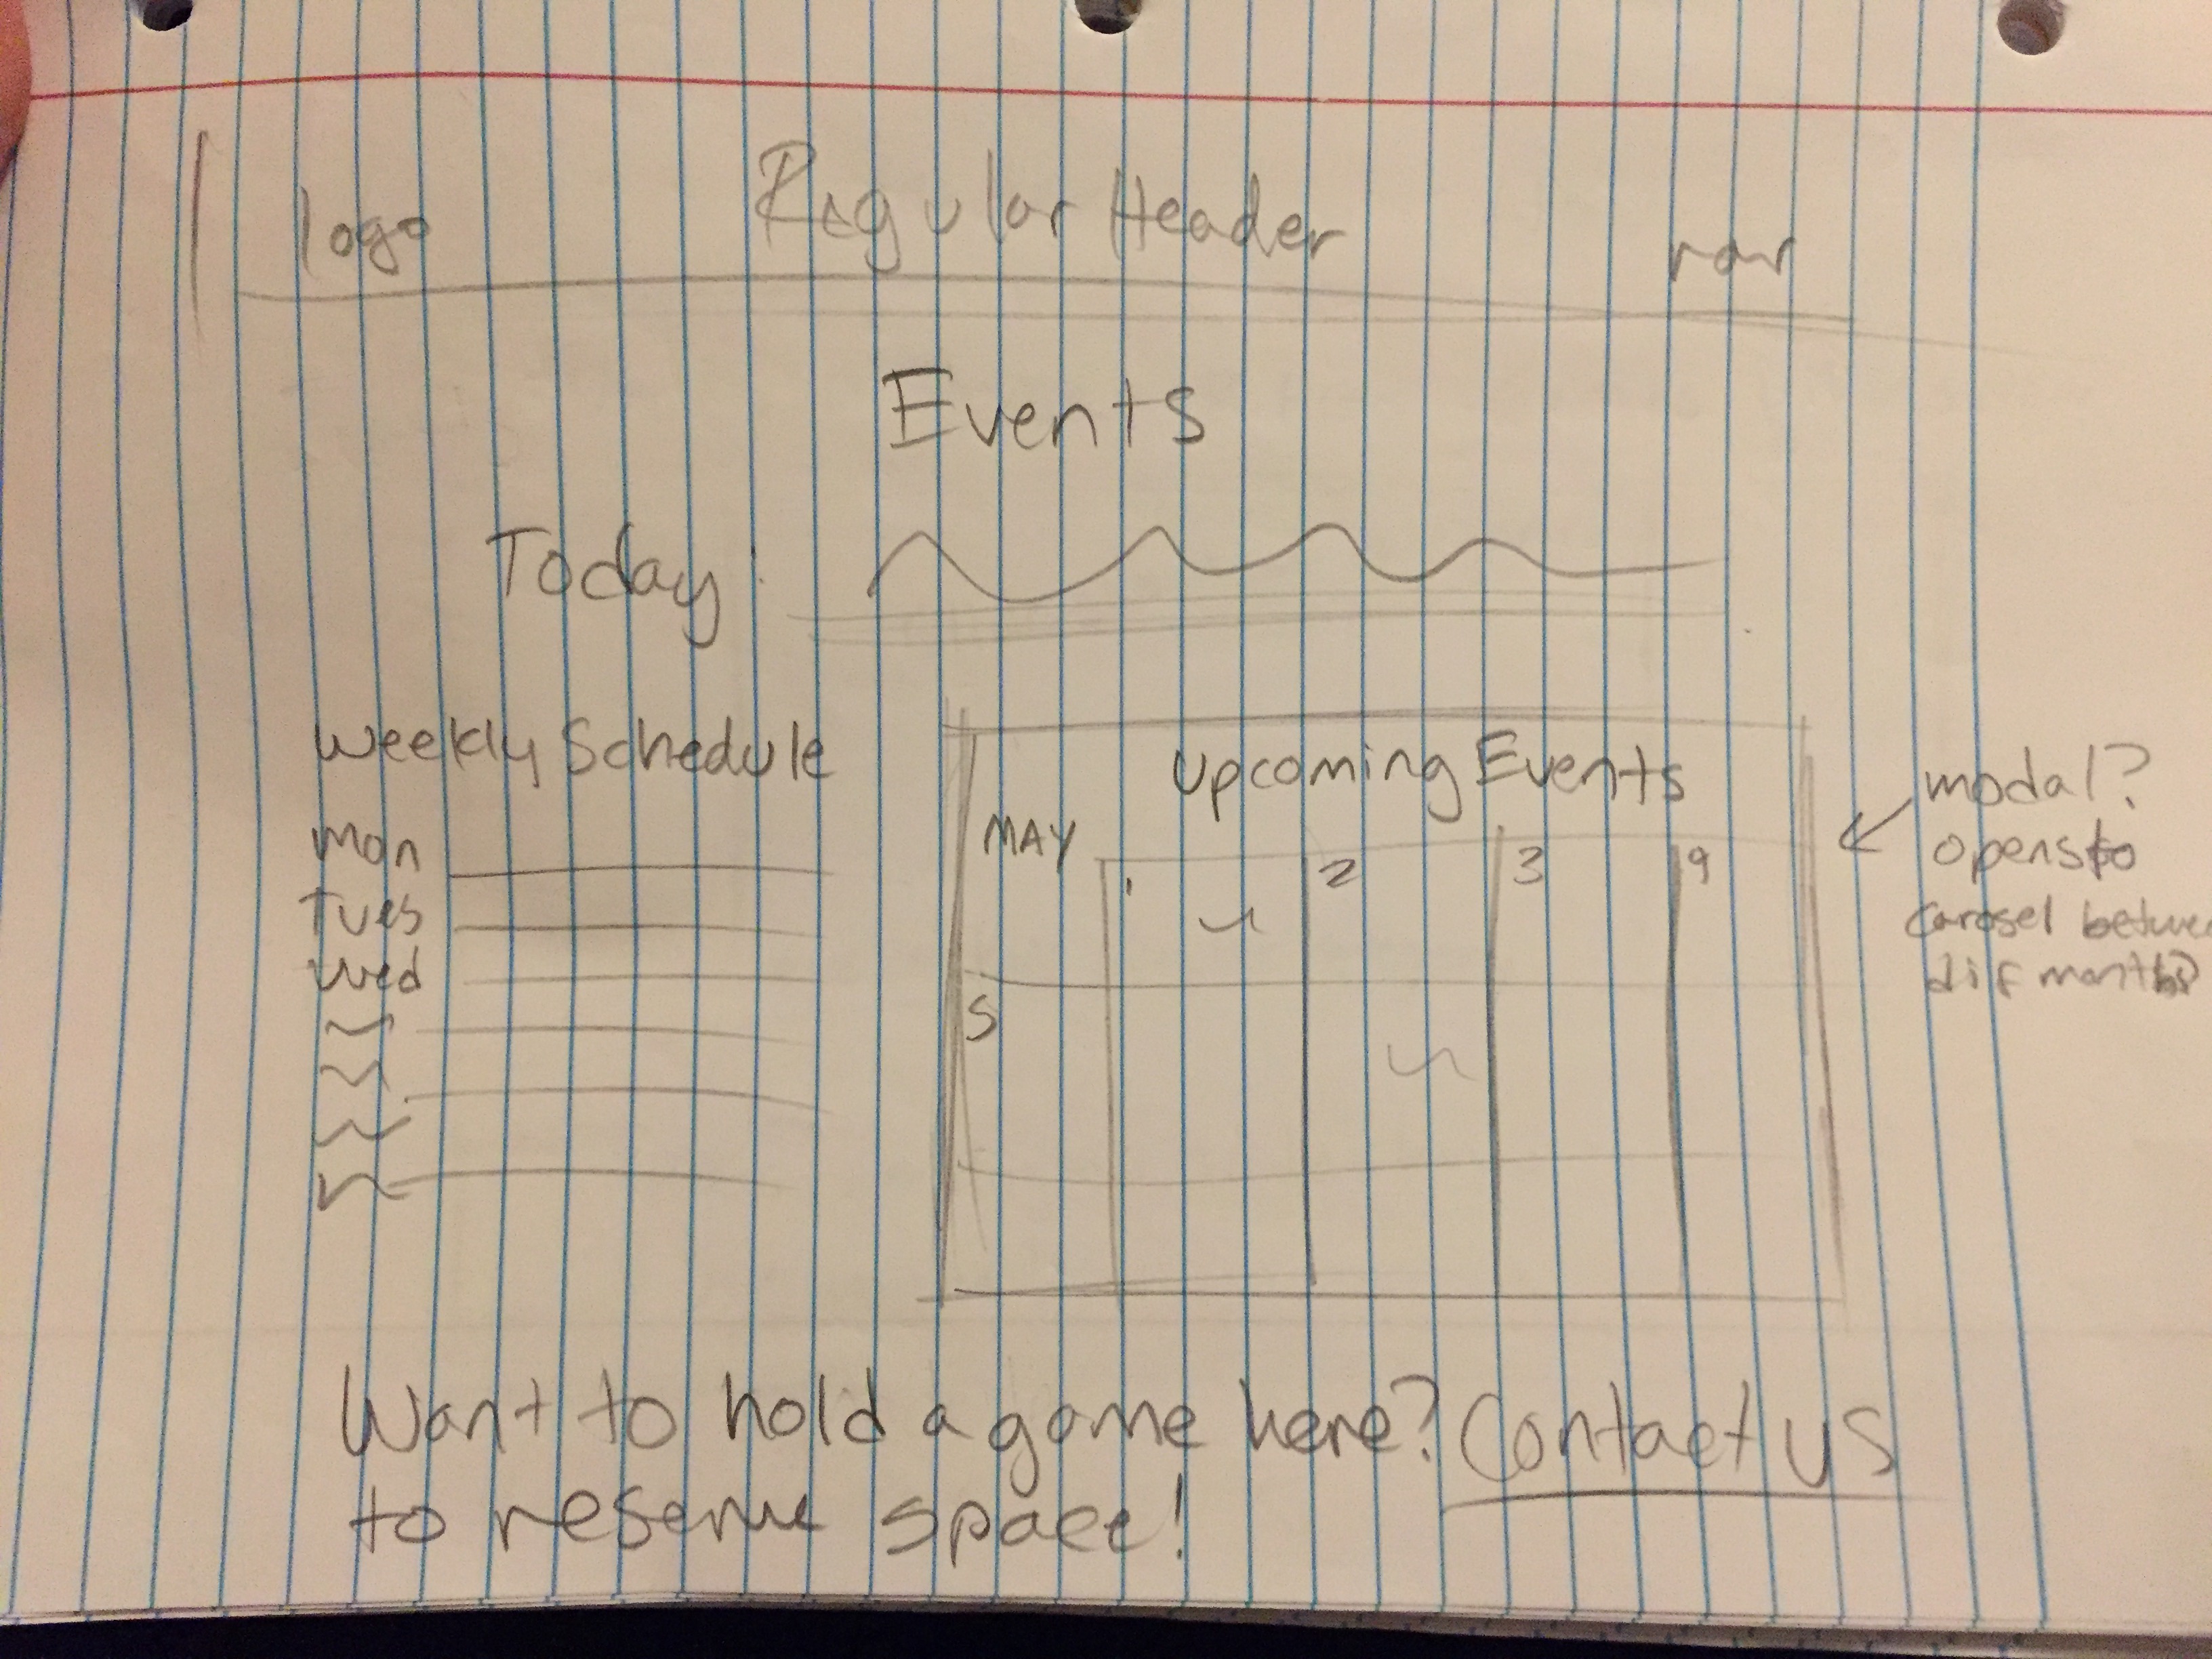 logo Regular Header nav
Events
Today:
Weekly Schedule
Mon
Tues
Wed
Upcoming Events
MAY 1 2 3 9
5
modal?
opens to
carosel betwee
dif months?
Want to hold a game here? Contact us
to reserve space!